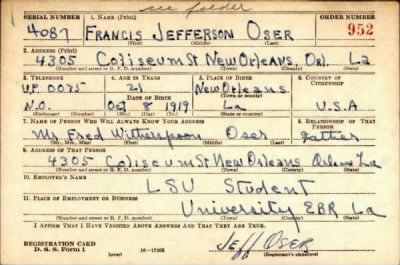 see folder
SERIAL NUMBER 1. NAME (Print) ORDER NUMBER
4087 FRANCIS JEFFERSON OSER 952
(First) (Middle) (Last)
2. ADDRESS (Print)
4305 Coliseum St New Orleans, Orl. La
(Number and street or R. F. D. number) (Town) (County) (State)
3. TELEPHONE 4. AGE IN YEARS 5. PLACE OF BIRTH 6. COUNTRY OF CITIZENSHIP
U.P. 0075 21 New Orleans
DATE OF BIRTH (Town or county)
N.O. Oct 8 1919 La U.S.A
(Exchange) (Number) (Mo.) (Day) (Yr.) (State or country)
7. NAME OF PERSON WHO WILL ALWAYS KNOW YOUR ADDRESS 8. RELATIONSHIP OF THAT PERSON
Mr Fred Witherspoon Oser father
(Mr., Mrs., Miss) (First) (Middle) (Last)
9. ADDRESS OF THAT PERSON
4305 Coliseum St New Orleans Orleans La
(Number and street or R. F. D. number) (Town) (County) (State)
10. EMPLOYER'S NAME
LSU Student
11. PLACE OF EMPLOYMENT OR BUSINESS
University EBR La
(Number and street or R. F. D. number) (Town) (County) (State)
I AFFIRM THAT I HAVE VERIFIED ABOVE ANSWERS AND THAT THEY ARE TRUE.
REGISTRATION CARD
D. S. S. Form 1 (over) Jeff Oser
(Registrant's signature)